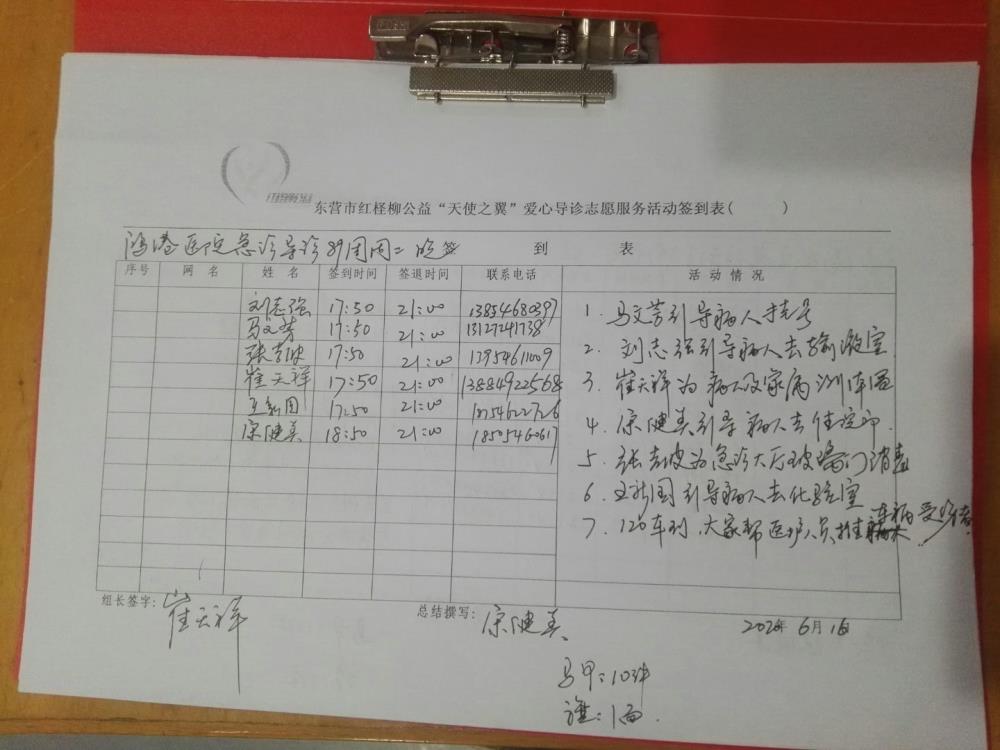 东营市红柽柳公益“天使之翼”爱心导诊志愿服务活动签到表( )
鸿港医院急诊导诊89周周二晚签 到 表
序号 网名 姓名 签到时间 签退时间 联系电话 活动情况
刘志强 17:50 21:00 13854680397
马文芳 17:50 21:00 13127241738
张吉波 17:50 21:00 13954611009
崔天祥 17:50 21:00 13884922568
王新国 17:50 21:00
宋健美 18:50 21:00 1850546061
1. 马文芳引导病人挂号
2. 刘志强引导病人去输液室
3. 崔天祥为病人及家属测体温
4. 宋健美引导病人去住院部
5. 张吉波为急诊大厅玻璃门消毒
6. 王新国引导病人去化验室
7. 120车到,大家帮医护人员推车
组长签字: 崔天祥
总结撰写: 宋健美
2020年6月16
马甲:10件
旗:1面.